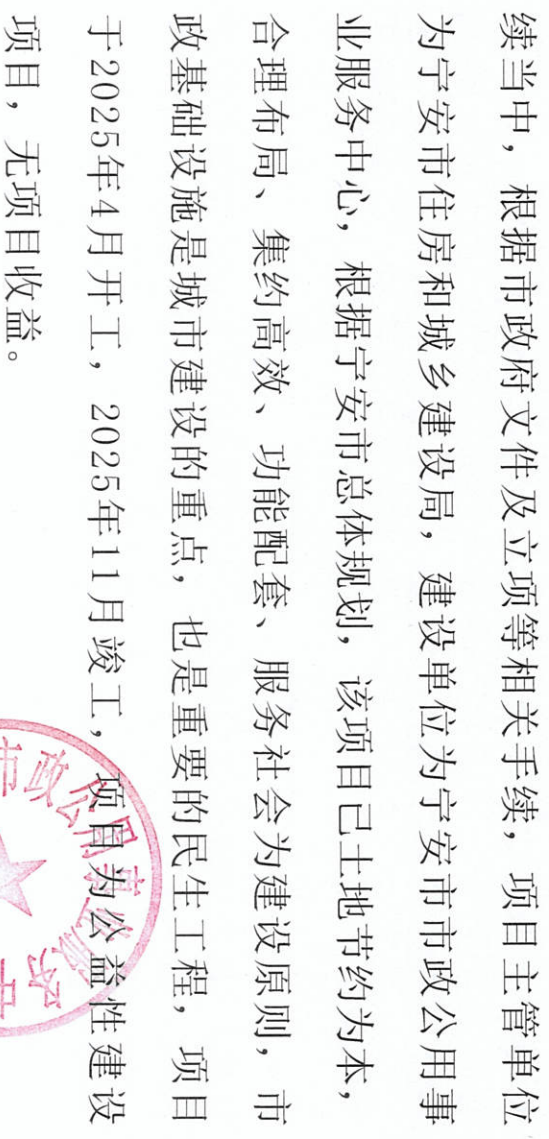 续当中，根据市政府文件及立项等相关手续，项目主管单位
为宁安市住房和城乡建设局，建设单位为宁安市市政公用事
业服务中心，根据宁安市总体规划，该项目已土地节约为本，
合理布局、集约高效、功能配套、服务社会为建设原则，市
政基础设施是城市建设的重点，也是重要的民生工程，项目
于2025年4月开工，2025年11月竣工，项目为公益性建设
项目，无项目收益。
市政公用事业服务中